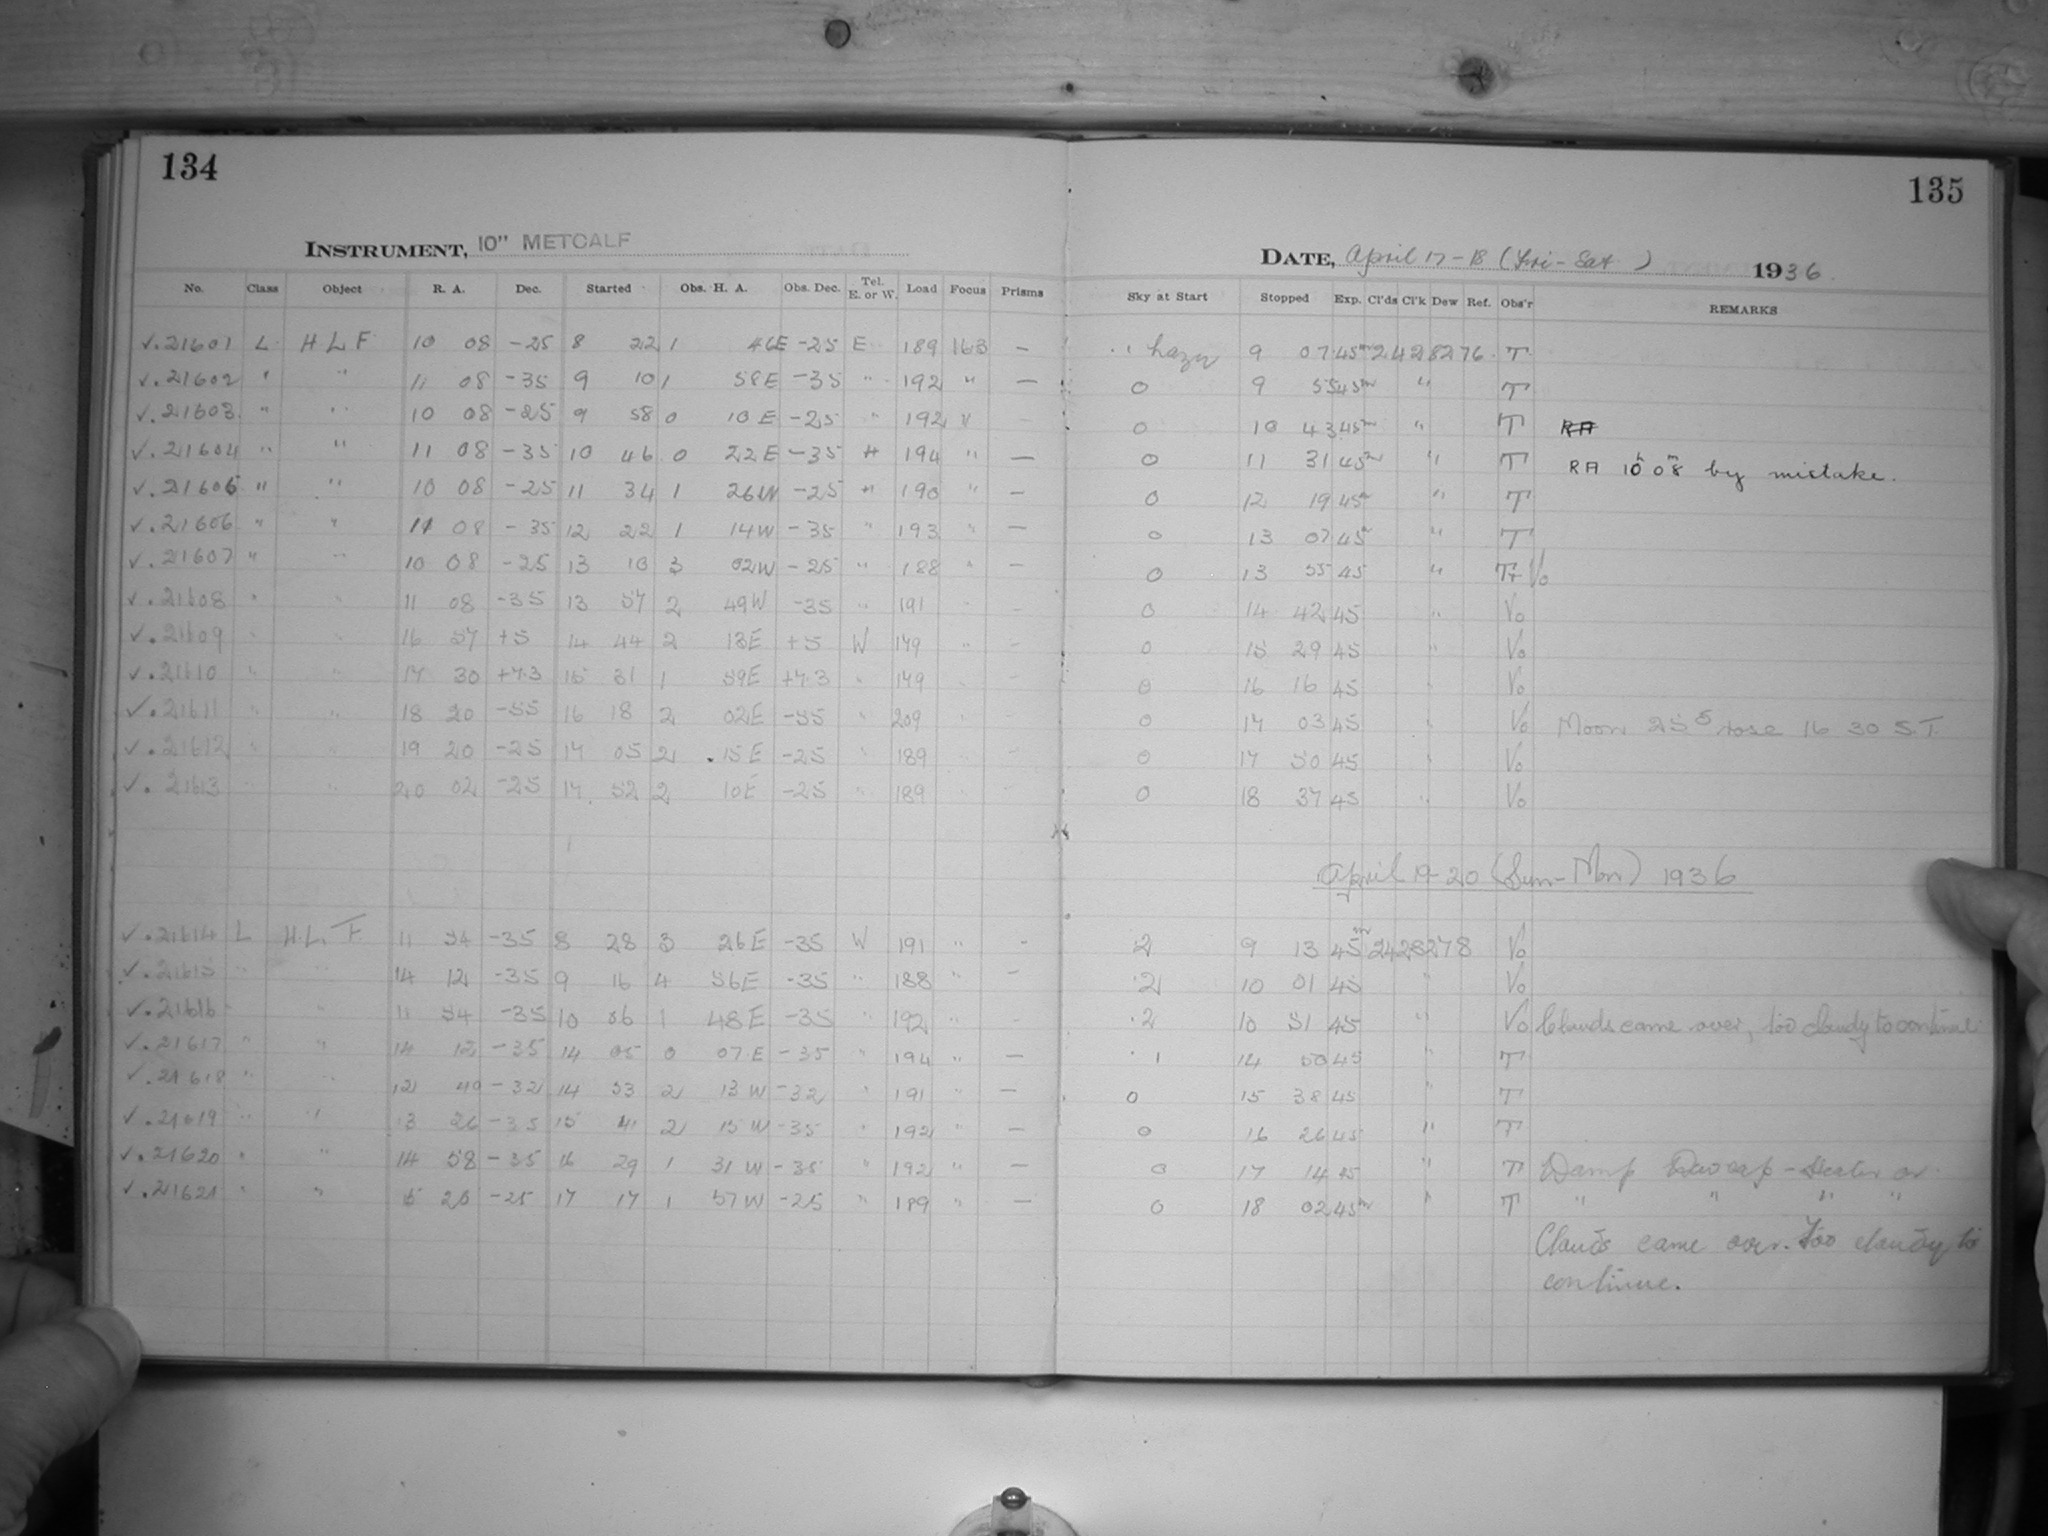 134
135
INSTRUMENT, 10" METCALF
DATE, April 17-18 (Fri-Sat) 1936.
No. Class Object R. A. Dec. Started Obs. H. A. Obs. Dec. Tel. E. or W. Load Focus Prisms Sky at Start Stopped Exp. Cl'ds Cl'k Dew Ref. Obs'r REMARKS
✓.21601 L H L F 10 08 -25 8 22 1 46E -25 E 189 163 — 1 hazy 9 07 45m 2428276 T
✓.21602 " " 11 08 -35 9 10 1 58E -35 " 192 " — 0 9 55 45m " T
✓.21603 " " 10 08 -25 9 58 0 10E -25 " 192 " 0 10 43 45m " T RA
✓.21604 " " 11 08 -35 10 46 0 22E -35 194 " — 0 11 31 45m " T RA 10h 08m by mistake.
✓.21605 " " 10 08 -25 11 34 1 26W -25 " 190 " — 0 12 19 45m " T
✓.21606 " " 11 08 -35 12 22 1 14W -35 " 193 " — 0 13 07 45m " T
✓.21607 " " 10 08 -25 13 10 3 02W -25 " 188 " — 0 13 55 45 " T+Vo
✓.21608 " " 11 08 -35 13 57 2 49W -35 " 191 " — 0 14 42 45 " Vo
✓.21609 " " 16 57 +5 14 44 2 13E +5 W 179 " — 0 15 29 45 " Vo
✓.21610 " " 17 30 +7.3 15 31 1 59E +7.3 " 179 " — 0 16 16 45 " Vo
✓.21611 " " 18 20 -55 16 18 2 02E -55 " 209 " — 0 17 03 45 " Vo Moon 25.5 rose 16 30 S.T.
✓.21612 " " 19 20 -25 17 05 2 15E -25 " 189 " — 0 17 50 45 " Vo
✓.21613 " " 20 02 -25 17 52 2 10E -25 " 189 " — 0 18 37 45 " Vo
April 19-20 (Sun-Mon) 1936
✓.21614 L H.L.F 11 54 -35 8 28 3 26E -35 W 191 " - 2 9 13 45m 2428278 Vo
✓.21615 " " 14 12 -35 9 16 4 56E -35 " 188 " - 2 10 01 45 " Vo
✓.21616 " " 11 54 -35 10 06 1 48E -35 " 192 " - 2 10 51 45 " Vo Clouds came over, too cloudy to continue
✓.21617 " " 14 12 -35 14 05 0 07E -35 " 194 " — 1 14 50 45 " T
✓.21618 " " 12 40 -32 14 53 2 13W -32 " 191 " — 0 15 38 45 " T
✓.21619 " " 13 26 -35 15 41 2 15W -35 " 192 " — 0 16 26 45 " T
✓.21620 " " 14 58 -35 16 29 1 31W -35 " 192 " — 0 17 14 45 " T Damp Dewcap-Heater on
✓.21621 " " 15 20 -25 17 17 1 57W -25 " 189 " — 0 18 02 45m " T " " " "
Clouds came over. Too cloudy to
continue.